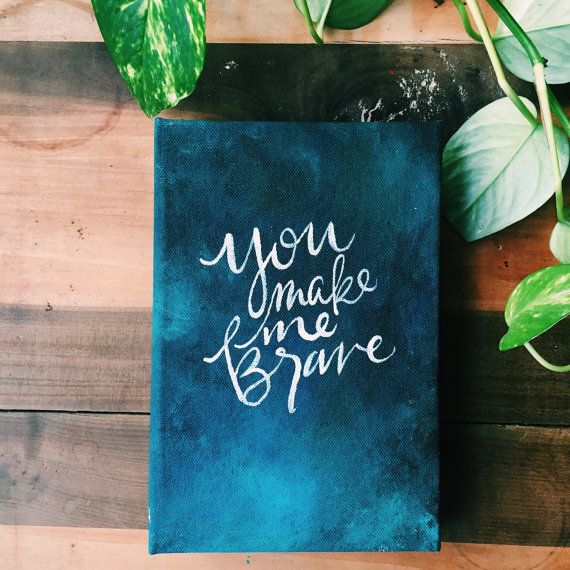 you
make
me
Brave